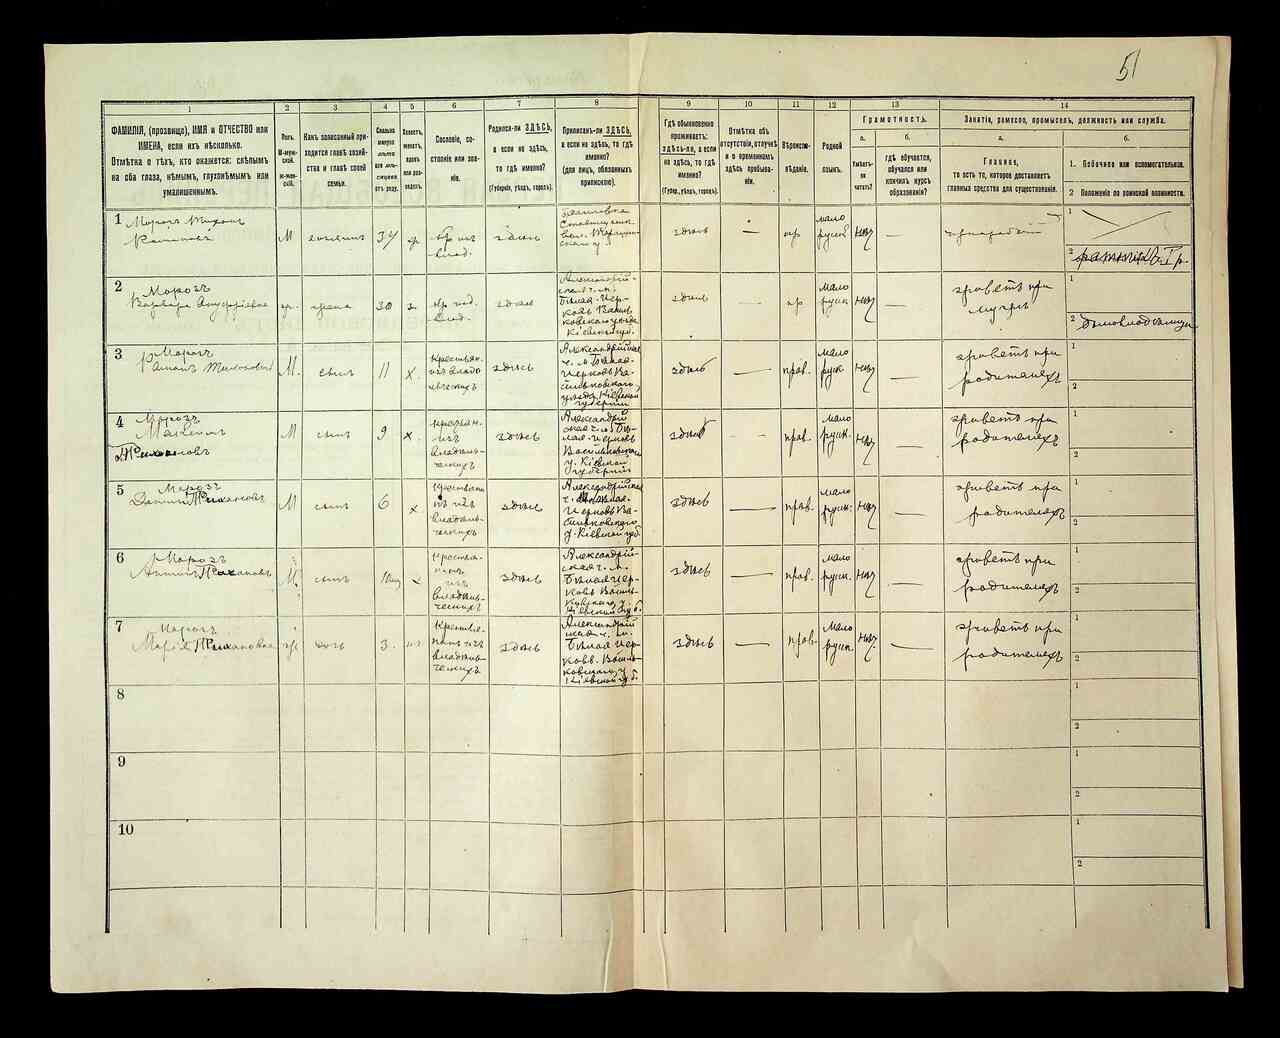 51
1 2 3 4 5 6 7 8 9 10 11 12 13 14
ФАМИЛІЯ, (прозвище), ИМЯ и ОТЧЕСТВО или
ИМЕНА, если ихъ нѣсколько.
Отмѣтка о тѣхъ, кто окажется: слѣпымъ
на оба глаза, нѣмымъ, глухонѣмымъ или
умалишеннымъ.
Полъ.
М-муж-
ской.
Ж-жен-
скій.
Какъ записанный при-
ходится главѣ хозяй-
ства и главѣ своей
семьи.
Сколько
минуло
лѣтъ
или мѣ-
сяцевъ
отъ роду.
Холостъ,
женатъ,
вдовъ
или раз-
веденъ.
Сословіе, со-
стояніе или зва-
ніе.
Родился-ли ЗДѢСЬ,
а если не здѣсь,
то гдѣ именно?
(Губернія, уѣздъ, городъ).
Приписанъ-ли ЗДѢСЬ,
а если не здѣсь, то гдѣ
именно?
(для лицъ, обязанныхъ
припискою).
Гдѣ обыкновенно
проживаетъ:
здѣсь-ли, а если
не здѣсь, то гдѣ
именно?
(Губер., уѣздъ, городъ).
Отмѣтка объ
отсутствіи, отлучкѣ
и о временномъ
здѣсь пребыва-
ніи.
Вѣроиспо-
вѣданіе.
Родной
языкъ.
Грамотность.
а.
Умѣетъ-
ли
читать?
б.
гдѣ обучается,
обучался или
кончилъ курсъ
образованія?
Занятіе, ремесло, промыселъ, должность или служба.
а.
Главное,
то есть то, которое доставляетъ
главныя средства для существованія.
б.
1. Побочное или вспомогательное.
2 Положеніе по воинской повинности.
1
Морозъ Тихонъ
М хозяинъ 34 здѣсь
здѣсь — пр мало русск нѣт —
1
2 ратникъ
2
Морозъ
Варвара Ануфріевна
жена 30 здѣсь
Александрій-
ской ч. м.
Бѣлая-Цер-
ковь Васил
ковскаго уѣзда
Кіевской губ.
здѣсь — пр мало русск нѣт —
живетъ при
мужѣ
1
2
3
Морозъ
Тихоновъ
М. сынъ 11 х.
крестьян.
изъ владѣ
льческихъ
здѣсь
Александрійская
ч. м. Бѣлая-
Церковь Ва-
сильковскаго
уѣзда Кіевской
губерніи
здѣсь — прав. мало русск нѣт —
живетъ при
родителяхъ
1
2
4
Морозъ
Максимъ
Тихоновъ
М сынъ 9 х.
крестьян.
изъ
владѣль-
ческихъ
здѣсь
Александрій
ская ч. м. Бѣ-
лая-Церковь
Васильковскаго
у. Кіевской
губерніи
здѣсь — прав. мало русск. нѣт —
живетъ при
родителяхъ
1
2
5
Морозъ
Тихоновъ
М сынъ 6 х
владѣль-
ческихъ
здѣсь
Александрійская
ч. м. Бѣлая-
Церковь Ва-
сильковскаго
у. Кіевской губ
здѣсь — прав. мало русск. нѣт —
живетъ при
родителяхъ
1
2
6
Морозъ
Тихоновъ
М. сынъ х
изъ
владѣль-
ческихъ
здѣсь
Александрій-
ская ч. м.
Бѣлая Цер-
ковь Василь-
ковскаго у.
Кіевской губ.
здѣсь — прав. мало русск. нѣт —
живетъ при
родителяхъ
1
2
7
Морозъ
Марія Тихоновна
дочь 3.
изъ
владѣль-
ческихъ
здѣсь
Александрій
ская ч. м.
Бѣлая Цер-
ковь. Василь-
ковскаго у.
Кіевской губ.
здѣсь — прав. мало русск. нѣт —
живетъ при
родителяхъ
1
2
8
1
2
9
1
2
10
1
2